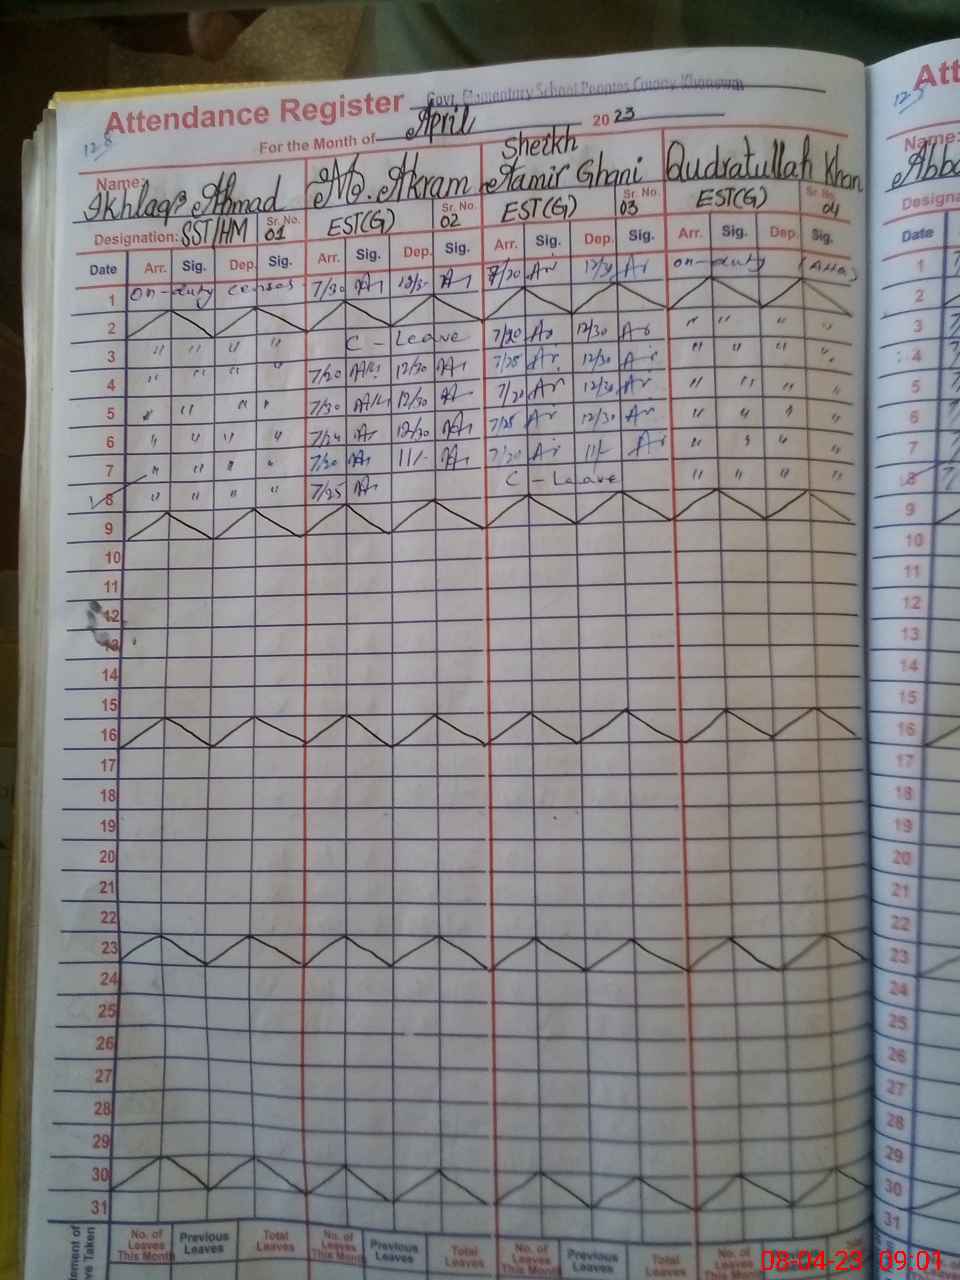 Govt. Elementary School Peoples Colony Khanewal
Attendance Register
For the Month of April 2023
Name: Ikhlaq Ahmad M. Akram Sheikh Aamir Ghani Qudratullah Khan
Designation: SST/HM Sr. No. 01 EST(G) Sr. No. 02 EST(G) Sr. No. 03 EST(G) Sr. No. 04
Date Arr. Sig. Dep. Sig. Arr. Sig. Dep. Sig. Arr. Sig. Dep. Sig. Arr. Sig. Dep. Sig.
1 on-duty census 7/30 12/30 7/20 Ar 12/30 Ar on-duty
2
3 " " " " C - Leave 7/20 Ar 12/30 Ar " " " "
4 " " " " 7/20 12/30 7/25 Ar 12/30 Ar " " " "
5 " " " " 7/30 12/30 7/20 Ar 12/30 Ar " " " "
6 " " " " 7/20 12/30 7/25 Ar 12/30 Ar " " " "
7 " " " " 7/20 11/- 7/20 Ar 11/- Ar " " " "
8 " " " " 7/25 C - Leave " " " "
9
10
11
12
13
14
15
16
17
18
19
20
21
22
23
24
25
26
27
28
29
30
31
No. of Leaves This Month Previous Leaves Total Leaves No. of Leaves This Month Previous Leaves Total Leaves No. of Leaves This Month Previous Leaves Total Leaves No. of Leaves This Month Previous Leaves
Att
Name:
Abba
Designa
Date
1
2
3
4
5
6
7
8
9
10
11
12
13
14
15
16
17
18
19
20
21
22
23
24
25
26
27
28
29
30
31
08-04-23 09:01